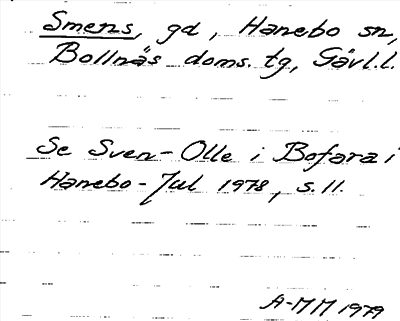 Smens, gd, Hanebo sn,
Bollnäs doms. tg, Gävl.l.
Se Sven-Olle i Bofara i
Hanebo-Jul 1978, s. 11.
A-MM 1979